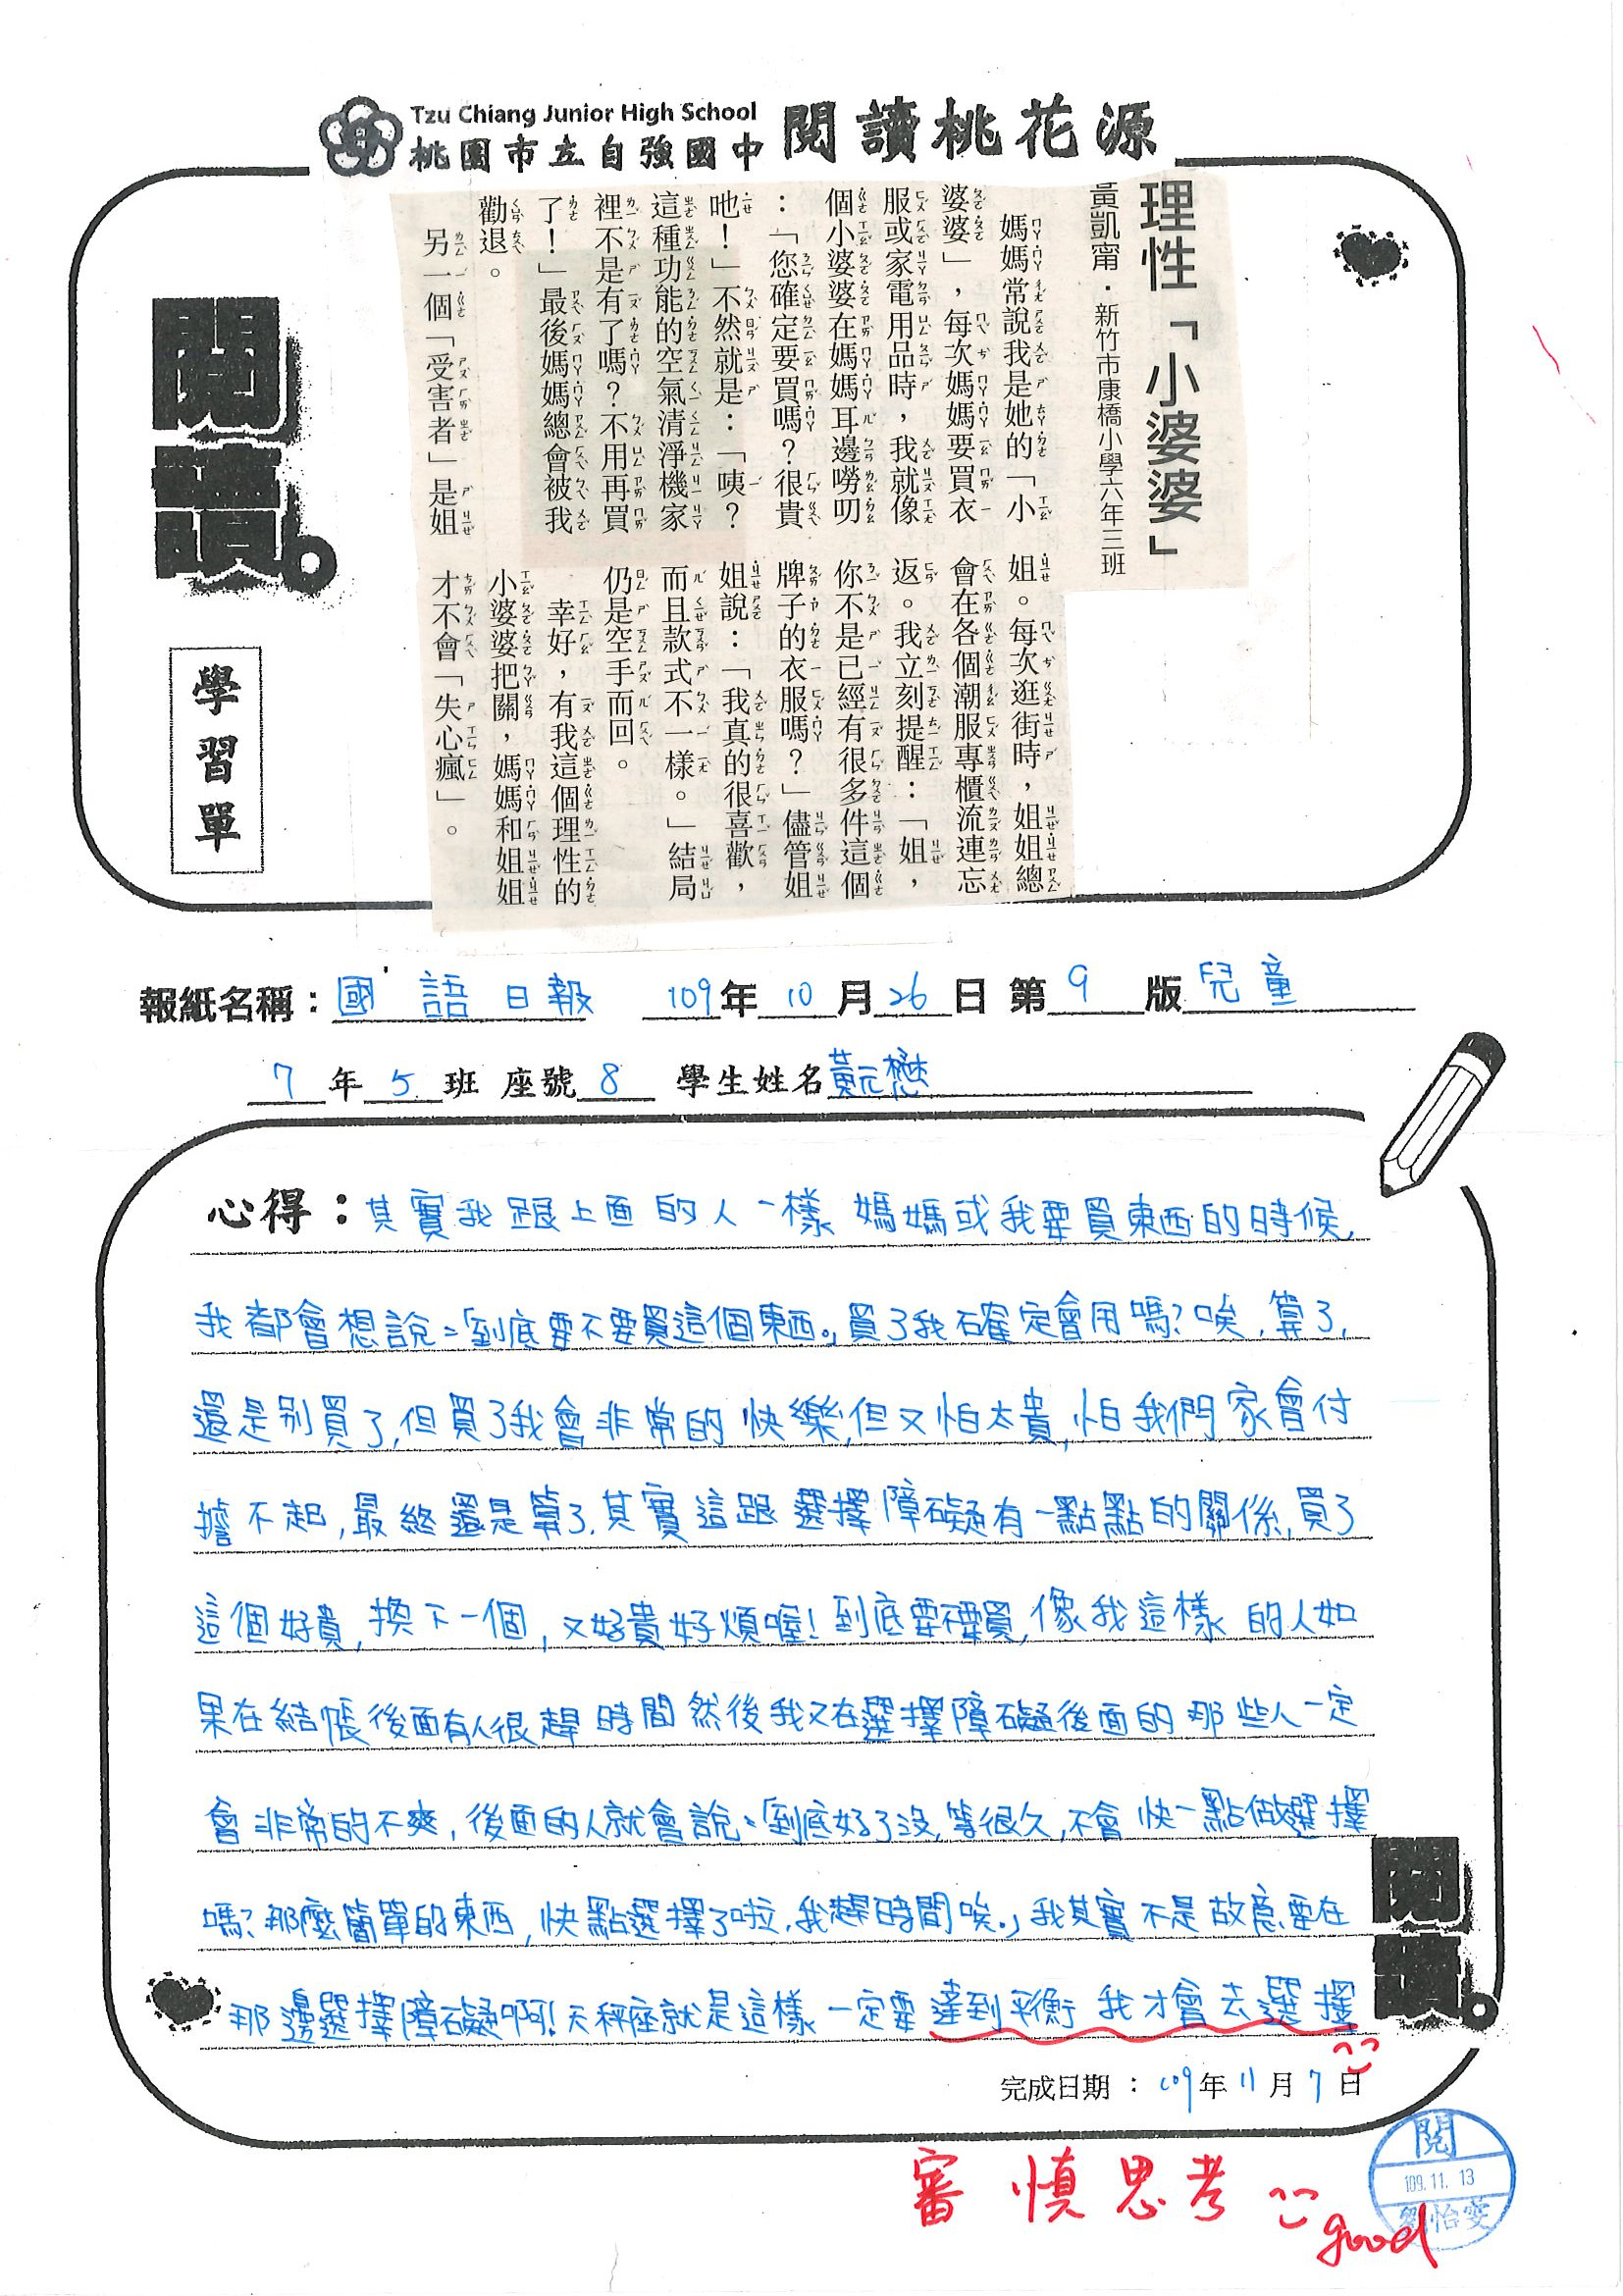 Tzu Chiang Junior High School
桃園市立自強國中 閱讀桃花源
閱讀。
學習單
理性「小婆婆」
黃凱甯・新竹市康橋小學六年三班
媽媽常說我是她的「小
婆婆」，每次媽媽要買衣
服或家電用品時，我就像
個小婆婆在媽媽耳邊嘮叨
：「您確定要買嗎？很貴
吔！」不然就是：「咦？
這種功能的空氣清淨機家
裡不是有了嗎？不用再買
了！」最後媽媽總會被我
勸退。
另一個「受害者」是姐
姐。每次逛街時，姐姐總
會在各個潮服專櫃流連忘
返。我立刻提醒：「姐，
你不是已經有很多件這個
牌子的衣服嗎？」儘管姐
姐說：「我真的很喜歡，
而且款式不一樣。」結局
仍是空手而回。
幸好，有我這個理性的
小婆婆把關，媽媽和姐姐
才不會「失心瘋」。
報紙名稱：國語日報 109年10月26日 第9版 兒童
7年5班 座號8 學生姓名黃元懋
心得：其實我跟上面的人一樣 媽媽或我要買東西的時候,
我都會想說:「到底要不要買這個東西。」買了我確定會用嗎?唉,算了,
還是別買了,但買了我會非常的快樂,但又怕太貴,怕我們家會付
擔不起,最終還是算了.其實這跟選擇障礙有一點點的關係,買了
這個好貴,換下一個,又好貴好煩喔!到底要不要買,像我這樣的人如
果在結帳後面有人很趕時間然後我又在選擇障礙後面的那些人一定
會非常的不爽,後面的人就會說:「到底好了沒,等很久,不會快一點做選擇
嗎?那麼簡單的東西,快點選擇了啦,我趕時間唉。」我其實不是故意要在
那邊選擇障礙啊!天秤座就是這樣一定要達到平衡我才會去選擇
閱讀。
完成日期：109年11月7日
審慎思考
good
閱
109.11.13
劉怡雯